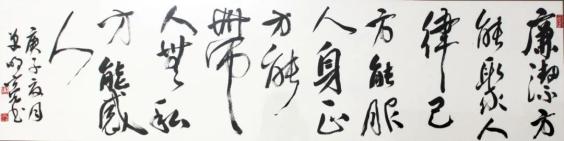 廉潔方
能聚人
律己
方能服
人身正
方能
帶
人無私
方能感
人
庚子夏月